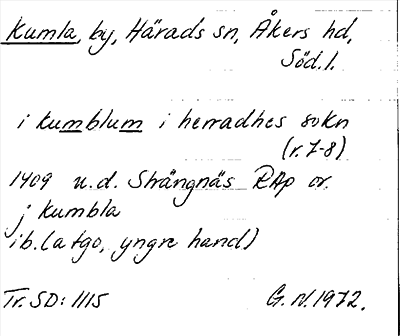 Kumla, by, Härads sn, Åkers hd,
Söd.l.
i kumblum i herradhes sokn
(r. 7-8)
1409 u.d. Strängnäs RAp or.
j kumbla
ib. (atgo, yngre hand)
Tr. SD: 1115
G.N. 1972.